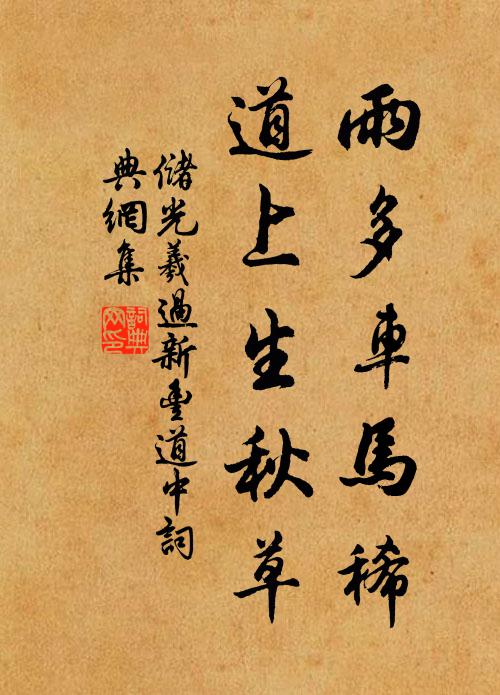 雨多車馬稀
道上生秋草
儲光羲過新豐道中詞
典網集
詞典
网印